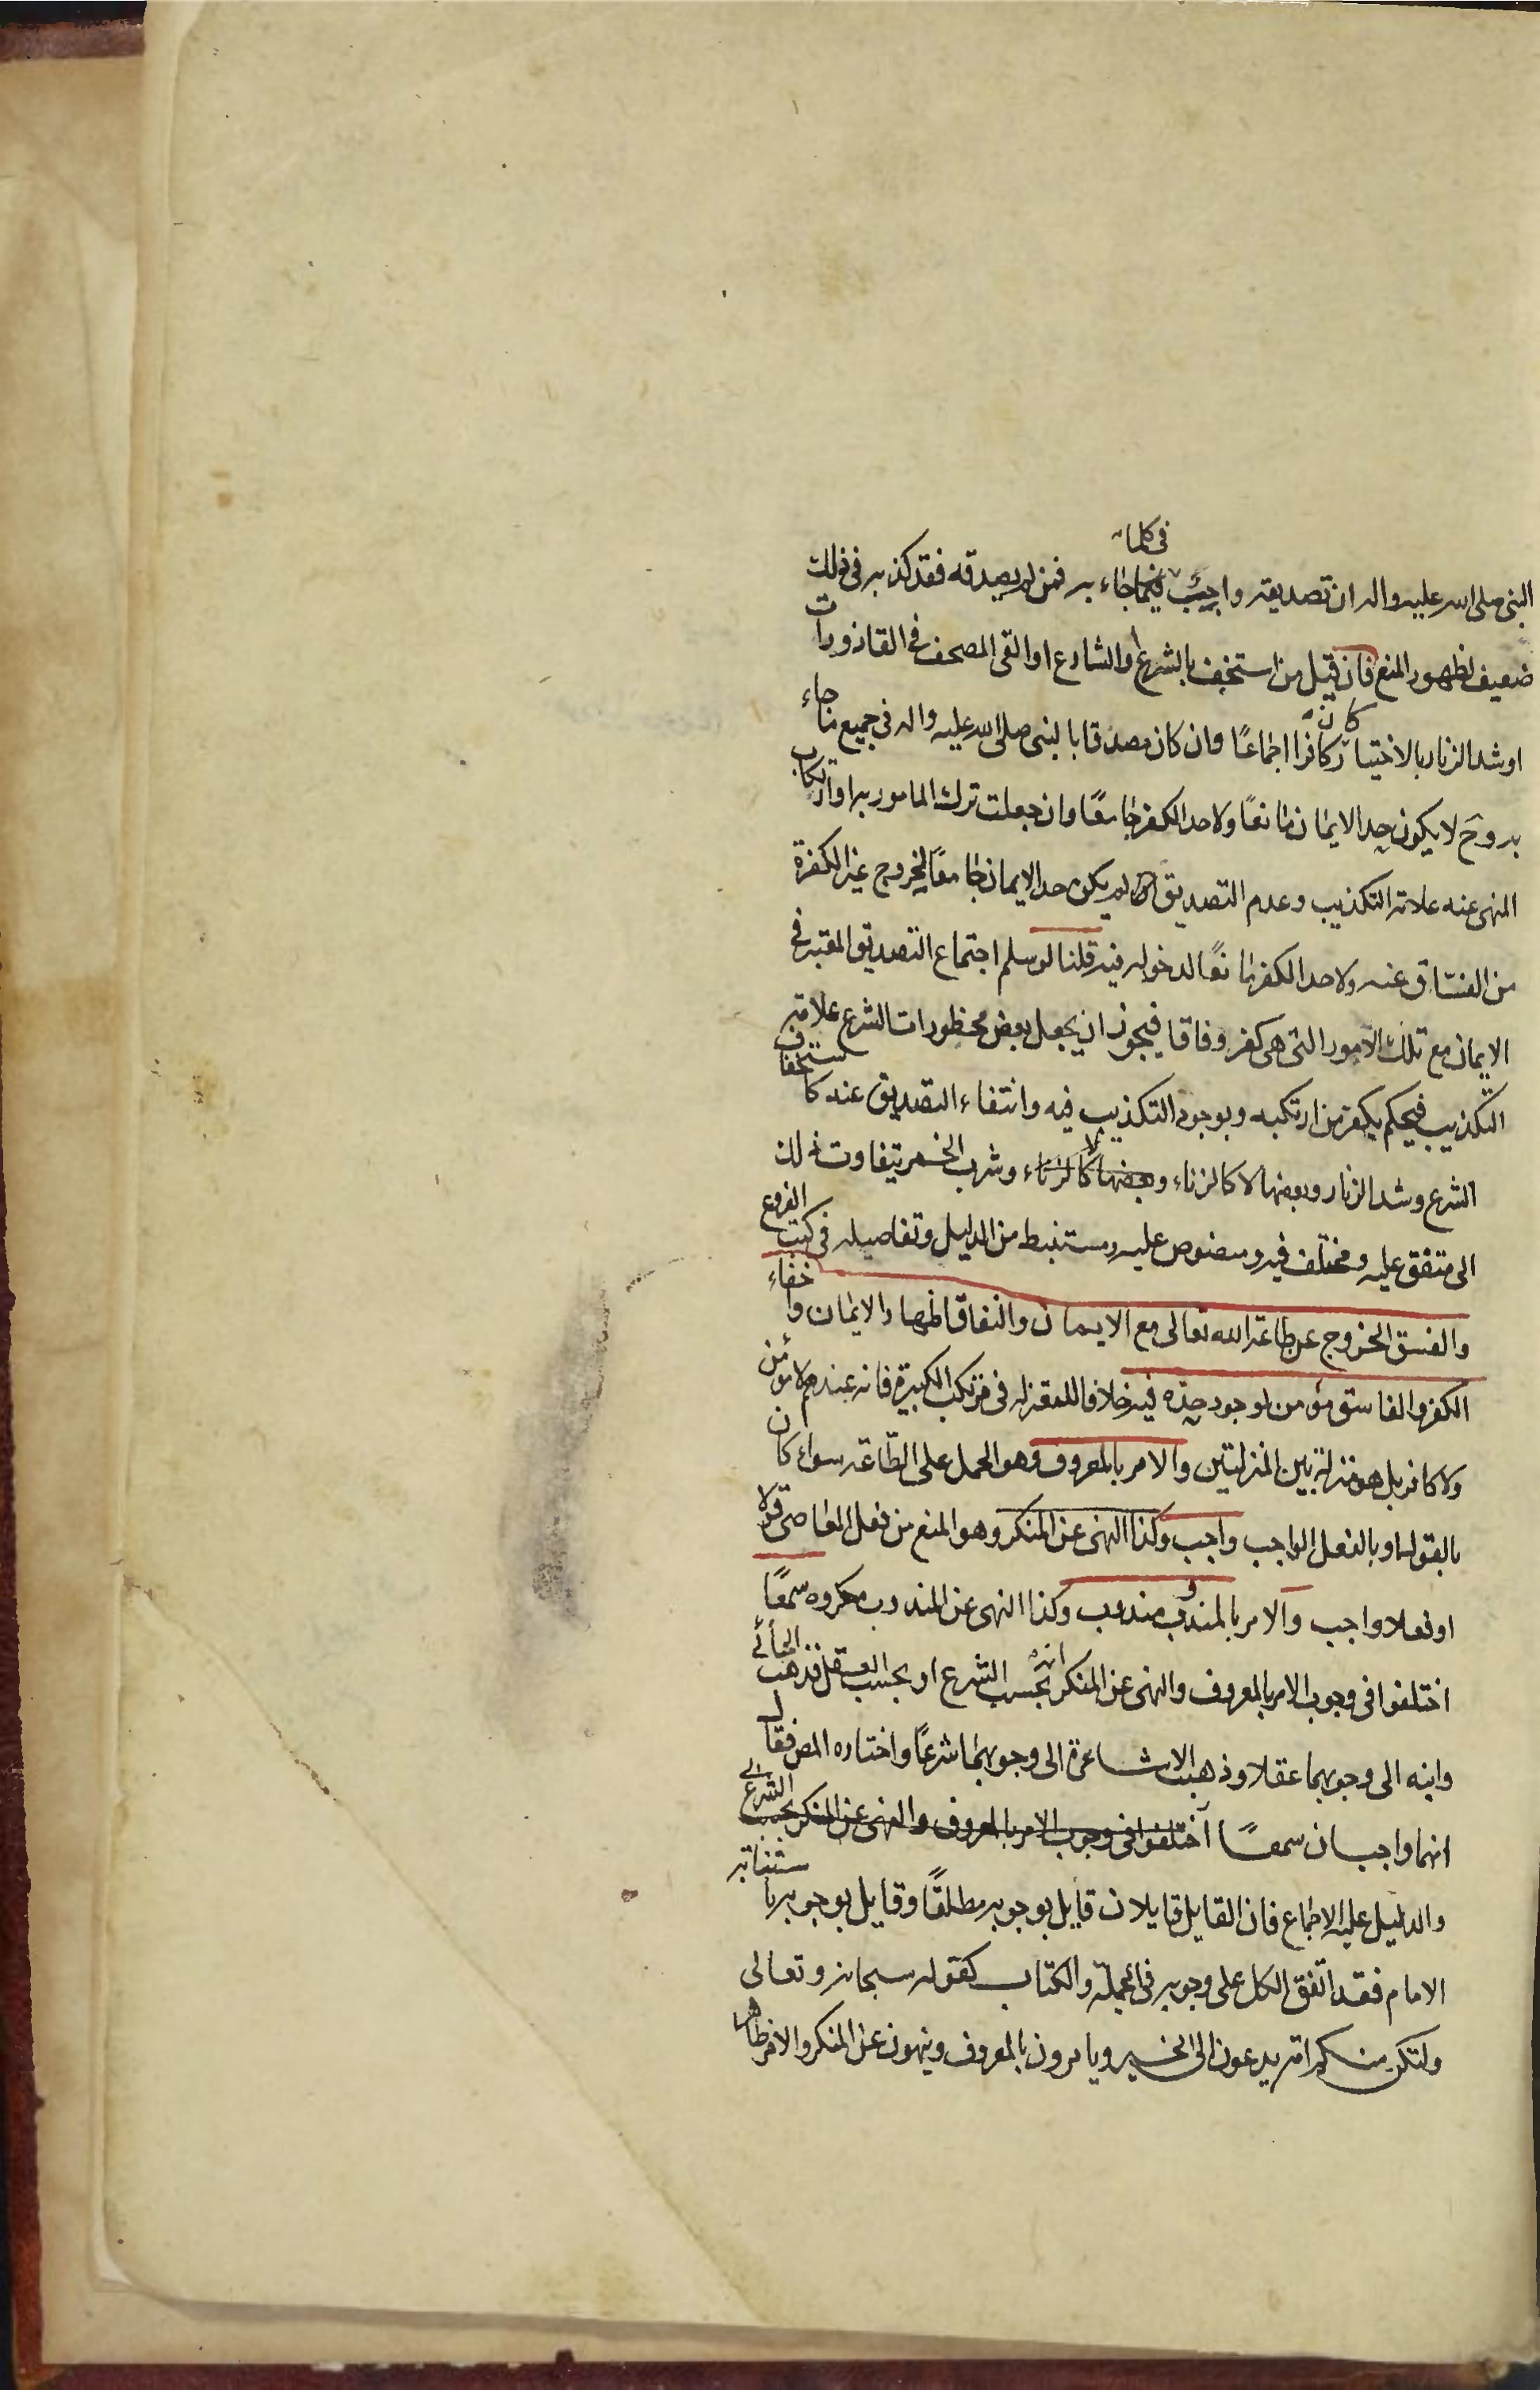 النبى صلى الله عليه واله ان تصديقه واجب فى كلما جاء به فمن لم يصدقه فقد كذبه فى ذلك
ضعيف لظهور المنع فان قيل من استخف بالشرع او الشارع او القى المصحف فى القاذورات
او شد الزنار بالاختيار كان كافرا اجماعًا وان كان مصدقا بالنبى صلى الله عليه واله فى جميع ما جاء
به وح لا يكون حد الايمان مانعًا ولا حد الكفر جامعًا وان جعلت ترك المامور به او ارتكاب
المنهى عنه علامة التكذيب وعدم التصديق لم يكن حد الايمان جامعًا لخروج غير الكفرة
من الفساق عنه ولا حد الكفر مانعًا لدخوله فيه قلنا لو سلم اجتماع التصديق المعتبر فى
الايمان مع تلك الامور التى هى كفر وفاقا فيجوز ان يجعل بعض محظورات الشرع علامة
التكذيب فيحكم بكفر من ارتكبه وبوجود التكذيب فيه وانتفاء التصديق عنه كاستخفاف
الشرع وشد الزنار وبعضها لا كالزناء وبعضها كالزناء وشرب الخمر يتفاوت ذلك
الى متفق عليه ومختلف فيه ومنصوص عليه ومستنبط من الدليل وتفاصيله فى كتب الفروع
والفسق الخروج عن طاعة الله تعالى مع الايمان والنفاق اظهار الايمان واخفاء
الكفر والفاسق مؤمن لوجود حده فيه خلافا للمعتزله فى مرتكب الكبيرة فانه عندهم لا مؤمن
ولا كافر بل هو منزلة بين المنزلتين والامر بالمعروف وهو الحمل على الطاعة سواء كان
بالقول او بالفعل الواجب واجب وكذا النهى عن المنكر وهو المنع من فعل المعاصى قولا
او فعلا واجب والامر بالمندوب مندوب وكذا النهى عن المندوب مكروه سمعًا
اختلفوا فى وجوب الامر بالمعروف والنهى عن المنكر انه بحسب الشرع او بحسب العقل فذهب الجبائى
وابنه الى وجوبهما عقلا وذهبت الاشاعرة الى وجوبهما شرعًا واختاره المص فقال
انهما واجبان سمعًا اختلفوا فى وجوب الامر بالمعروف والنهى عن المنكر بحسب الشرع
والدليل عليه الاجماع فان القايل قايلان قايل بوجوبه مطلقًا وقايل بوجوبه باستنابة
الامام فقد اتفق الكل على وجوبه فى الجملة والكتاب كقوله سبحانه وتعالى
ولتكن منكم امة يدعون الى الخير ويامرون بالمعروف وينهون عن المنكر والامر ظاهر